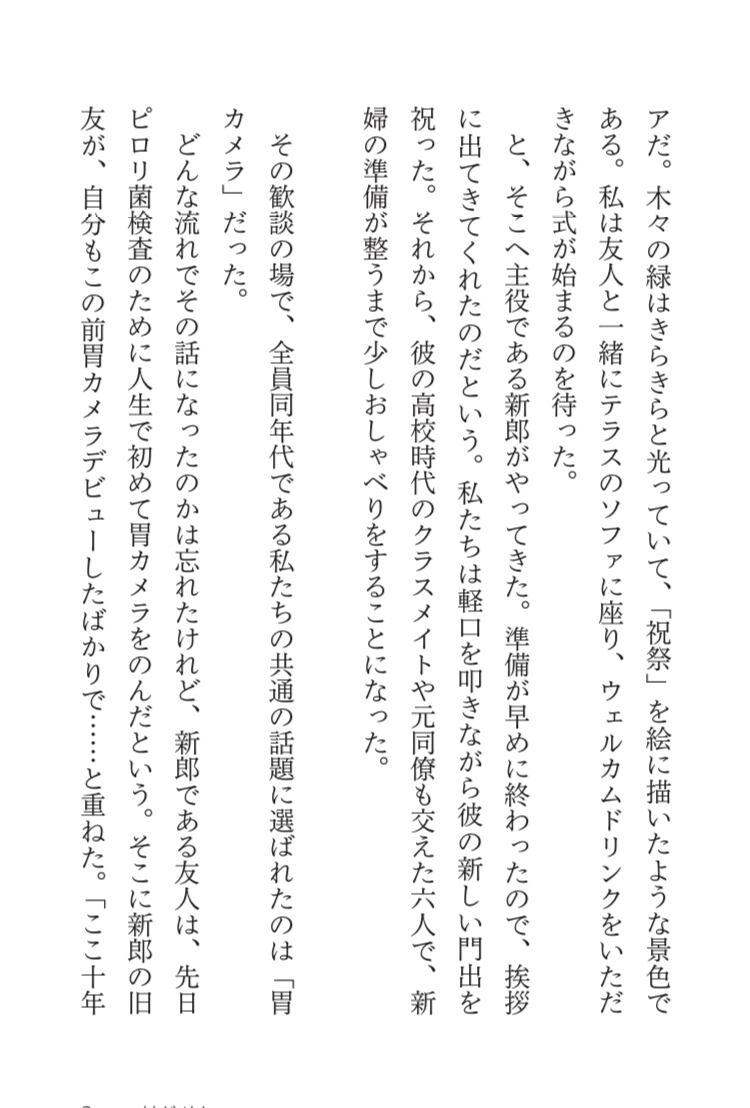 アだ。木々の緑はきらきらと光っていて、「祝祭」を絵に描いたような景色で
ある。私は友人と一緒にテラスのソファに座り、ウェルカムドリンクをいただ
きながら式が始まるのを待った。
と、そこへ主役である新郎がやってきた。準備が早めに終わったので、挨拶
に出てきてくれたのだという。私たちは軽口を叩きながら彼の新しい門出を
祝った。それから、彼の高校時代のクラスメイトや元同僚も交えた六人で、新
婦の準備が整うまで少しおしゃべりをすることになった。
その歓談の場で、全員同年代である私たちの共通の話題に選ばれたのは「胃
カメラ」だった。
どんな流れでその話になったのかは忘れたけれど、新郎である友人は、先日
ピロリ菌検査のために人生で初めて胃カメラをのんだという。そこに新郎の旧
友が、自分もこの前胃カメラデビューしたばかりで……と重ねた。「ここ十年